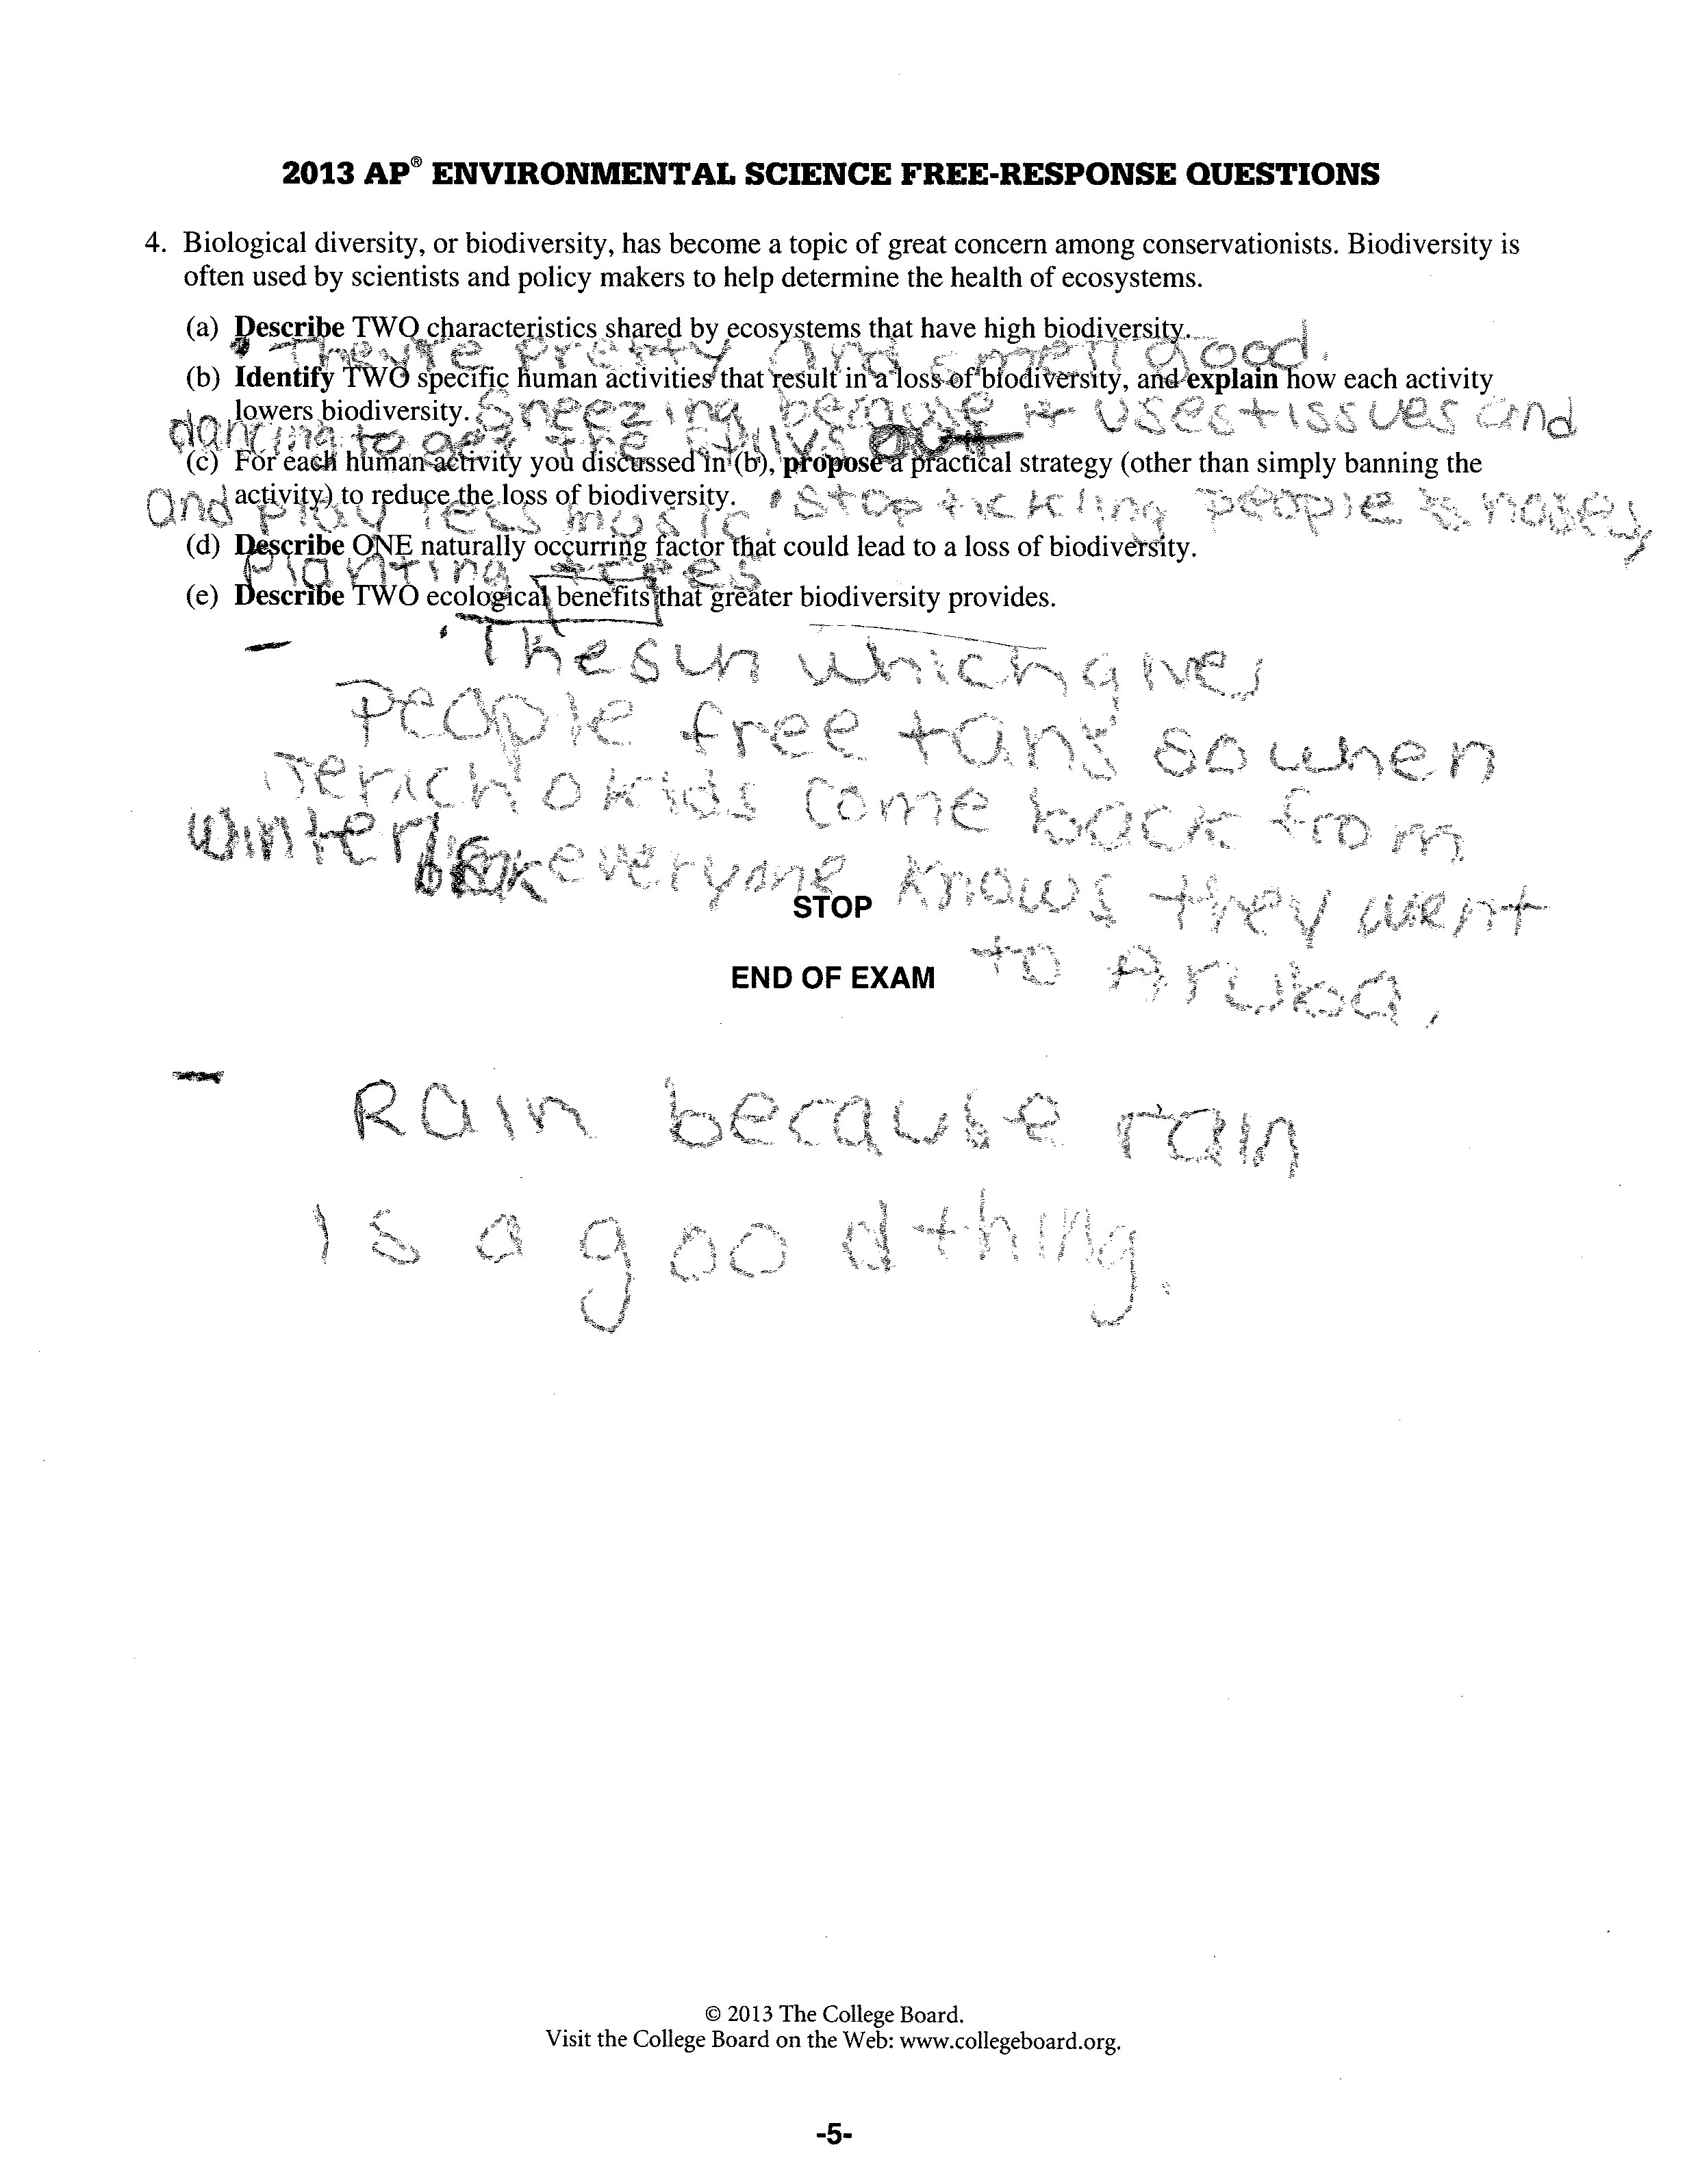 2013 AP® ENVIRONMENTAL SCIENCE FREE-RESPONSE QUESTIONS
4. Biological diversity, or biodiversity, has become a topic of great concern among conservationists. Biodiversity is
often used by scientists and policy makers to help determine the health of ecosystems.
(a) Describe TWO characteristics shared by ecosystems that have high biodiversity.
They're pretty and smell good.
(b) Identify TWO specific human activities that result in a loss of biodiversity, and explain how each activity
lowers biodiversity. Sneezing because it uses tissues and
dancing to get the sillys out
(c) For each human activity you discussed in (b), propose a practical strategy (other than simply banning the
activity) to reduce the loss of biodiversity. Stop tickling people's noses,
and play less music.
(d) Describe ONE naturally occurring factor that could lead to a loss of biodiversity.
Planting trees
(e) Describe TWO ecological benefits that greater biodiversity provides.
- The sun which gives
people free tans so when
Jericho kids come back from
winter break everyone knows they went
STOP
to Aruba.
END OF EXAM
- Rain because rain
is a good thing.
© 2013 The College Board.
Visit the College Board on the Web: www.collegeboard.org.
-5-